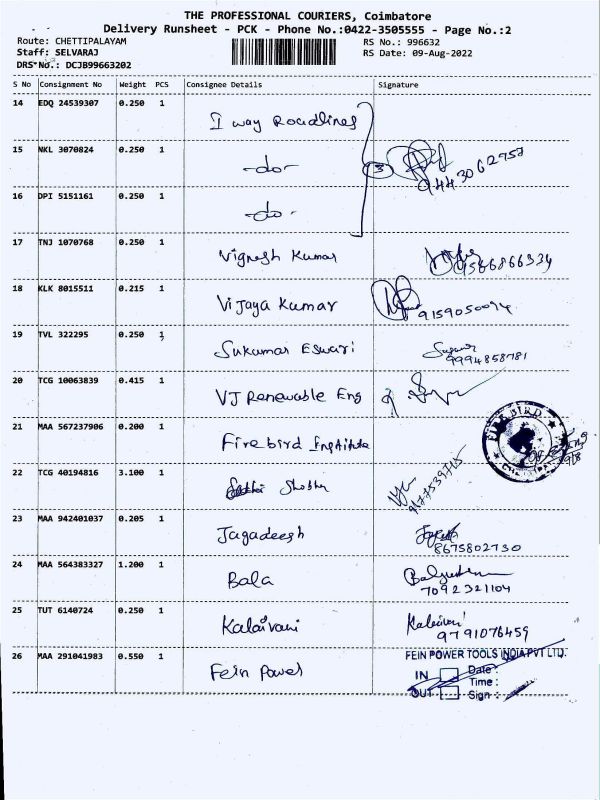 THE PROFESSIONAL COURIERS, Coimbatore
Delivery Runsheet - PCK - Phone No.:0422-3505555 - Page No.:2
Route: CHETTIPALAYAM RS No.: 996632
Staff: SELVARAJ RS Date: 09-Aug-2022
DRS No.: DCJB99663202
S No Consignment No Weight PCS Consignee Details Signature
14 EDQ 24539307 0.250 1 I way Roadlines
15 NKL 3070824 0.250 1 -do- 3 9443062757
16 DPI 5151161 0.250 1 -do-
17 TNJ 1070768 0.250 1 Vignesh Kumar 9566866334
18 KLK 8015511 0.215 1 Vijaya Kumar 9159050094
19 TVL 322295 0.250 1 Sukumar Eswari 9994858781
20 TCG 10063839 0.415 1 VJ Renewable Eng
21 MAA 567237906 0.200 1 Firebird Institute FIRE BIRD
22 TCG 40194816 3.100 1 Shobha 9677539715
23 MAA 942401037 0.205 1 Jagadeesh 8675802730
24 MAA 564383327 1.200 1 Bala 7092321104
25 TUT 6140724 0.250 1 Kalaivani Kalaivani 9791076459
26 MAA 291041983 0.550 1 Fein Power FEIN POWER TOOLS INDIA PVT LTD.
IN Date :
Time :
OUT Sign :